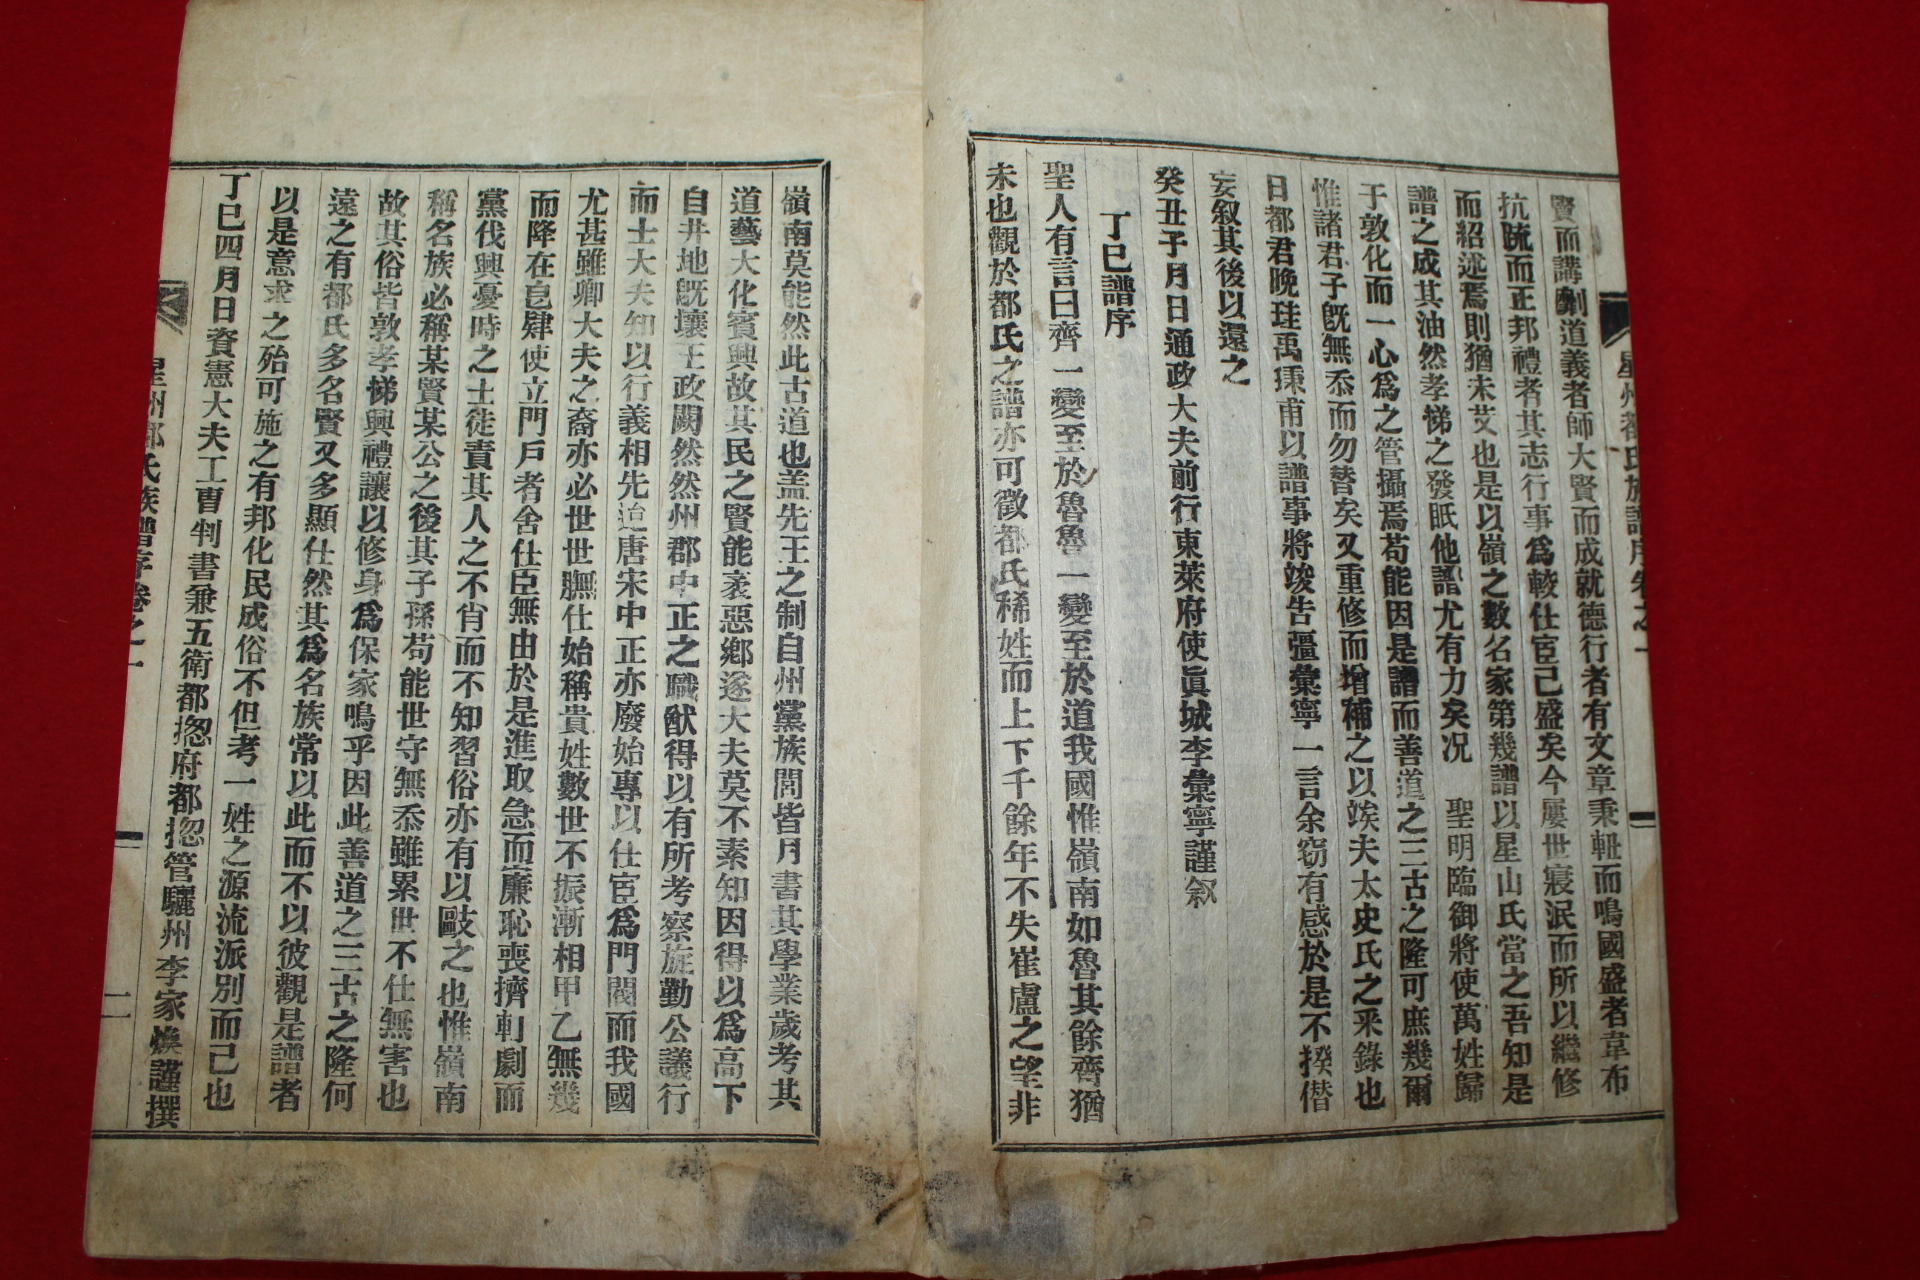 賢而講劘道義者師大賢而成就德行者有文章秉軺而鳴國盛者韋布
抗疏而正邦禮者其志行事爲較仕宦已盛矣今屢世寢泯而所以繼修
而紹述焉則猶未艾也是以嶺之數名家第幾譜以星山氏當之吾知是
譜之成其油然孝悌之發眡他譜尤有力矣况 聖明臨御將使萬姓歸
于敦化而一心爲之管攝焉苟能因是譜而善道之三古之隆可庶幾爾
惟諸君子旣無忝而勿替矣又重修而增補之以竢夫太史氏之采錄也
日都君晩珪禹秉甫以譜事將竣告彊彙寧一言余窃有感於是不揆僭
妄叙其後以還之
癸丑子月日通政大夫前行東萊府使眞城李彙寧謹叙
丁巳譜序
聖人有言曰齊一變至於魯魯一變至於道我國惟嶺南如魯其餘齊猶
未也觀於都氏之譜亦可徵都氏稀姓而上下千餘年不失崔盧之望非
嶺南莫能然此古道也盖先王之制自州黨族閭皆月書其學業歲考其
道藝大化賓興故其民之賢能衺惡鄉遂大夫莫不素知因得以爲高下
自井地旣壞王政闕然然州郡中正之職猷得以有所考察旌勤公議行
而士大夫知以行義相先迨唐宋中正亦廢始專以仕宦爲門閥而我國
尤甚雖卿大夫之裔亦必世世膴仕始稱貴姓數世不振漸相甲乙無幾
而降在皂肄使立門戶者舍仕臣無由於是進取急而廉恥喪擠軋劇而
黨伐興憂時之士徒責其人之不肖而不知習俗亦有以敺之也惟嶺南
稱名族必稱某賢某公之後其子孫苟能世守無忝雖累世不仕無害也
故其俗皆敦孝悌興禮讓以修身爲保家鳴乎因此善道之三古之隆何
遠之有都氏多名賢又多顯仕然其爲名族常以此而不以彼觀是譜者
以是意求之殆可施之有邦化民成俗不但考一姓之源流派別而已也
丁巳四月日資憲大夫工曹判書兼五衛都摠府都摠管驪州李家煥謹撰
星州都氏族譜序卷之一
二